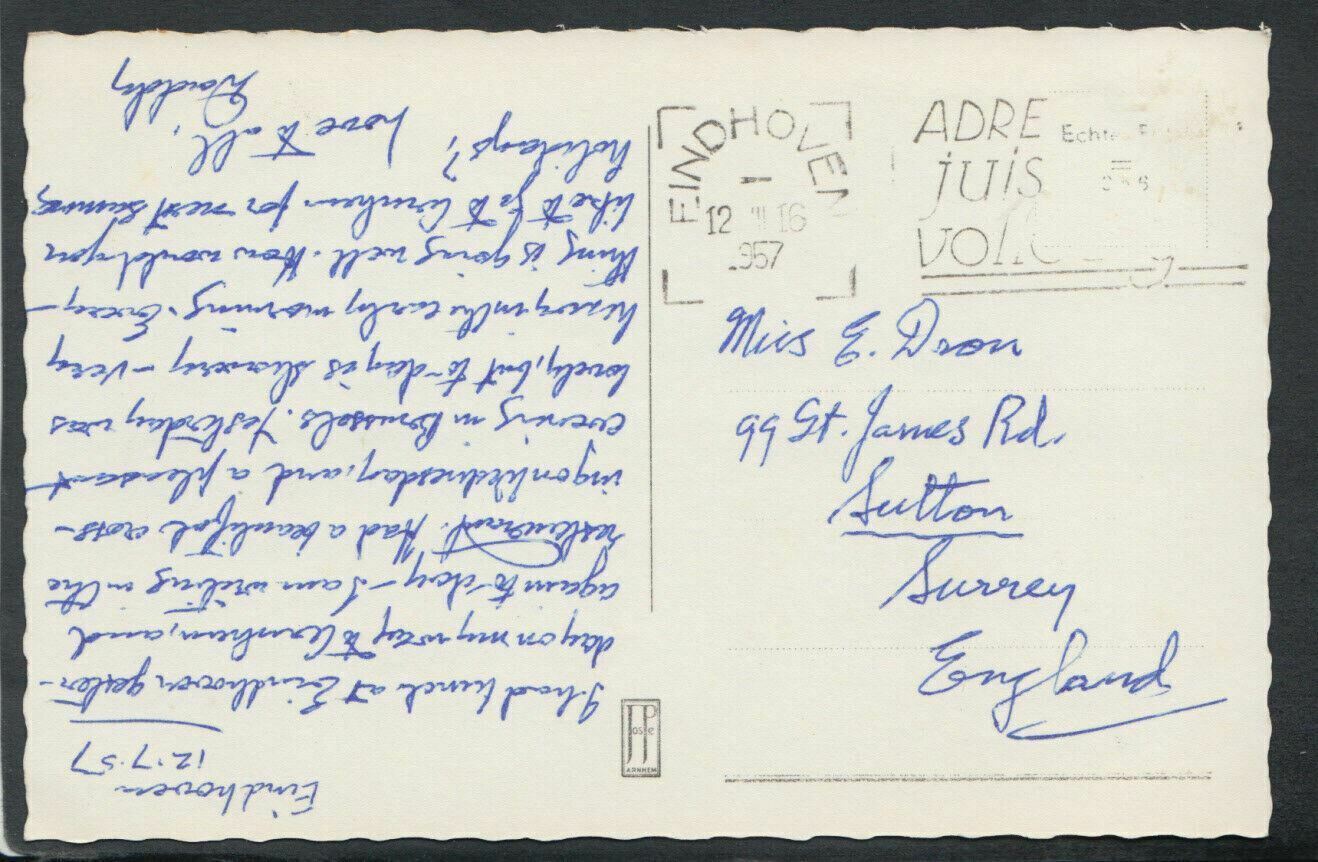 Eindhoven
12.7.57
I had lunch at Eindhoven yester-
day on my way to Arnhem, and
again to-day - I am writing in the
restaurant. Had a beautiful cross-
ing on Wednesday, and a pleasant
evening in Brussels. Yesterday was
lovely, but to-day is showery - very
heavy in the early morning. Every-
thing is going well. How would you
like to go to Arnhem for next summer
holidays?
Love to all,
Daddy
JosPé
ARNHEM
EINDHOVEN
12 VII 16
1957
ADRE
JUIS
VOLL
Echte
Miss E. Dron
99 St. James Rd.
Sutton
Surrey
England